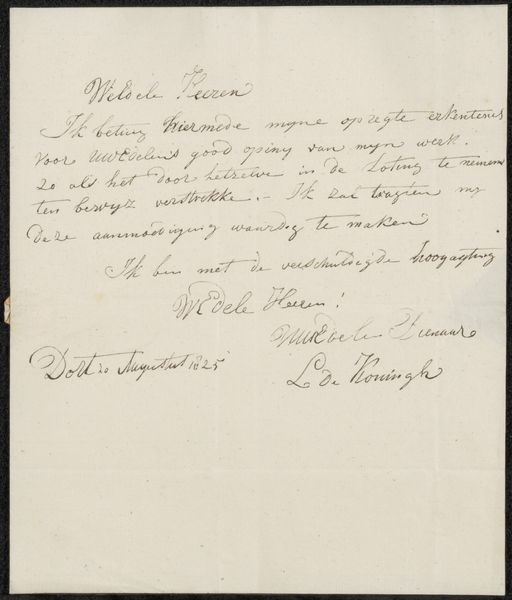 WelEdele Heeren
Ik betuig hiermede myne opregte erkentenis
voor UWEdelens good opiny van myn werk.
zo als het door hetzelve in de Loting te nemen
ten bewyz verstrekke. - Ik zal tragten my
deze aanmoediging waardig te maken
Ik ben met de verschuldigde hoogagting
WEdele Heeren!
UWEdelen Dienaar
Dort 20 Augustus 1825
L de Koningh